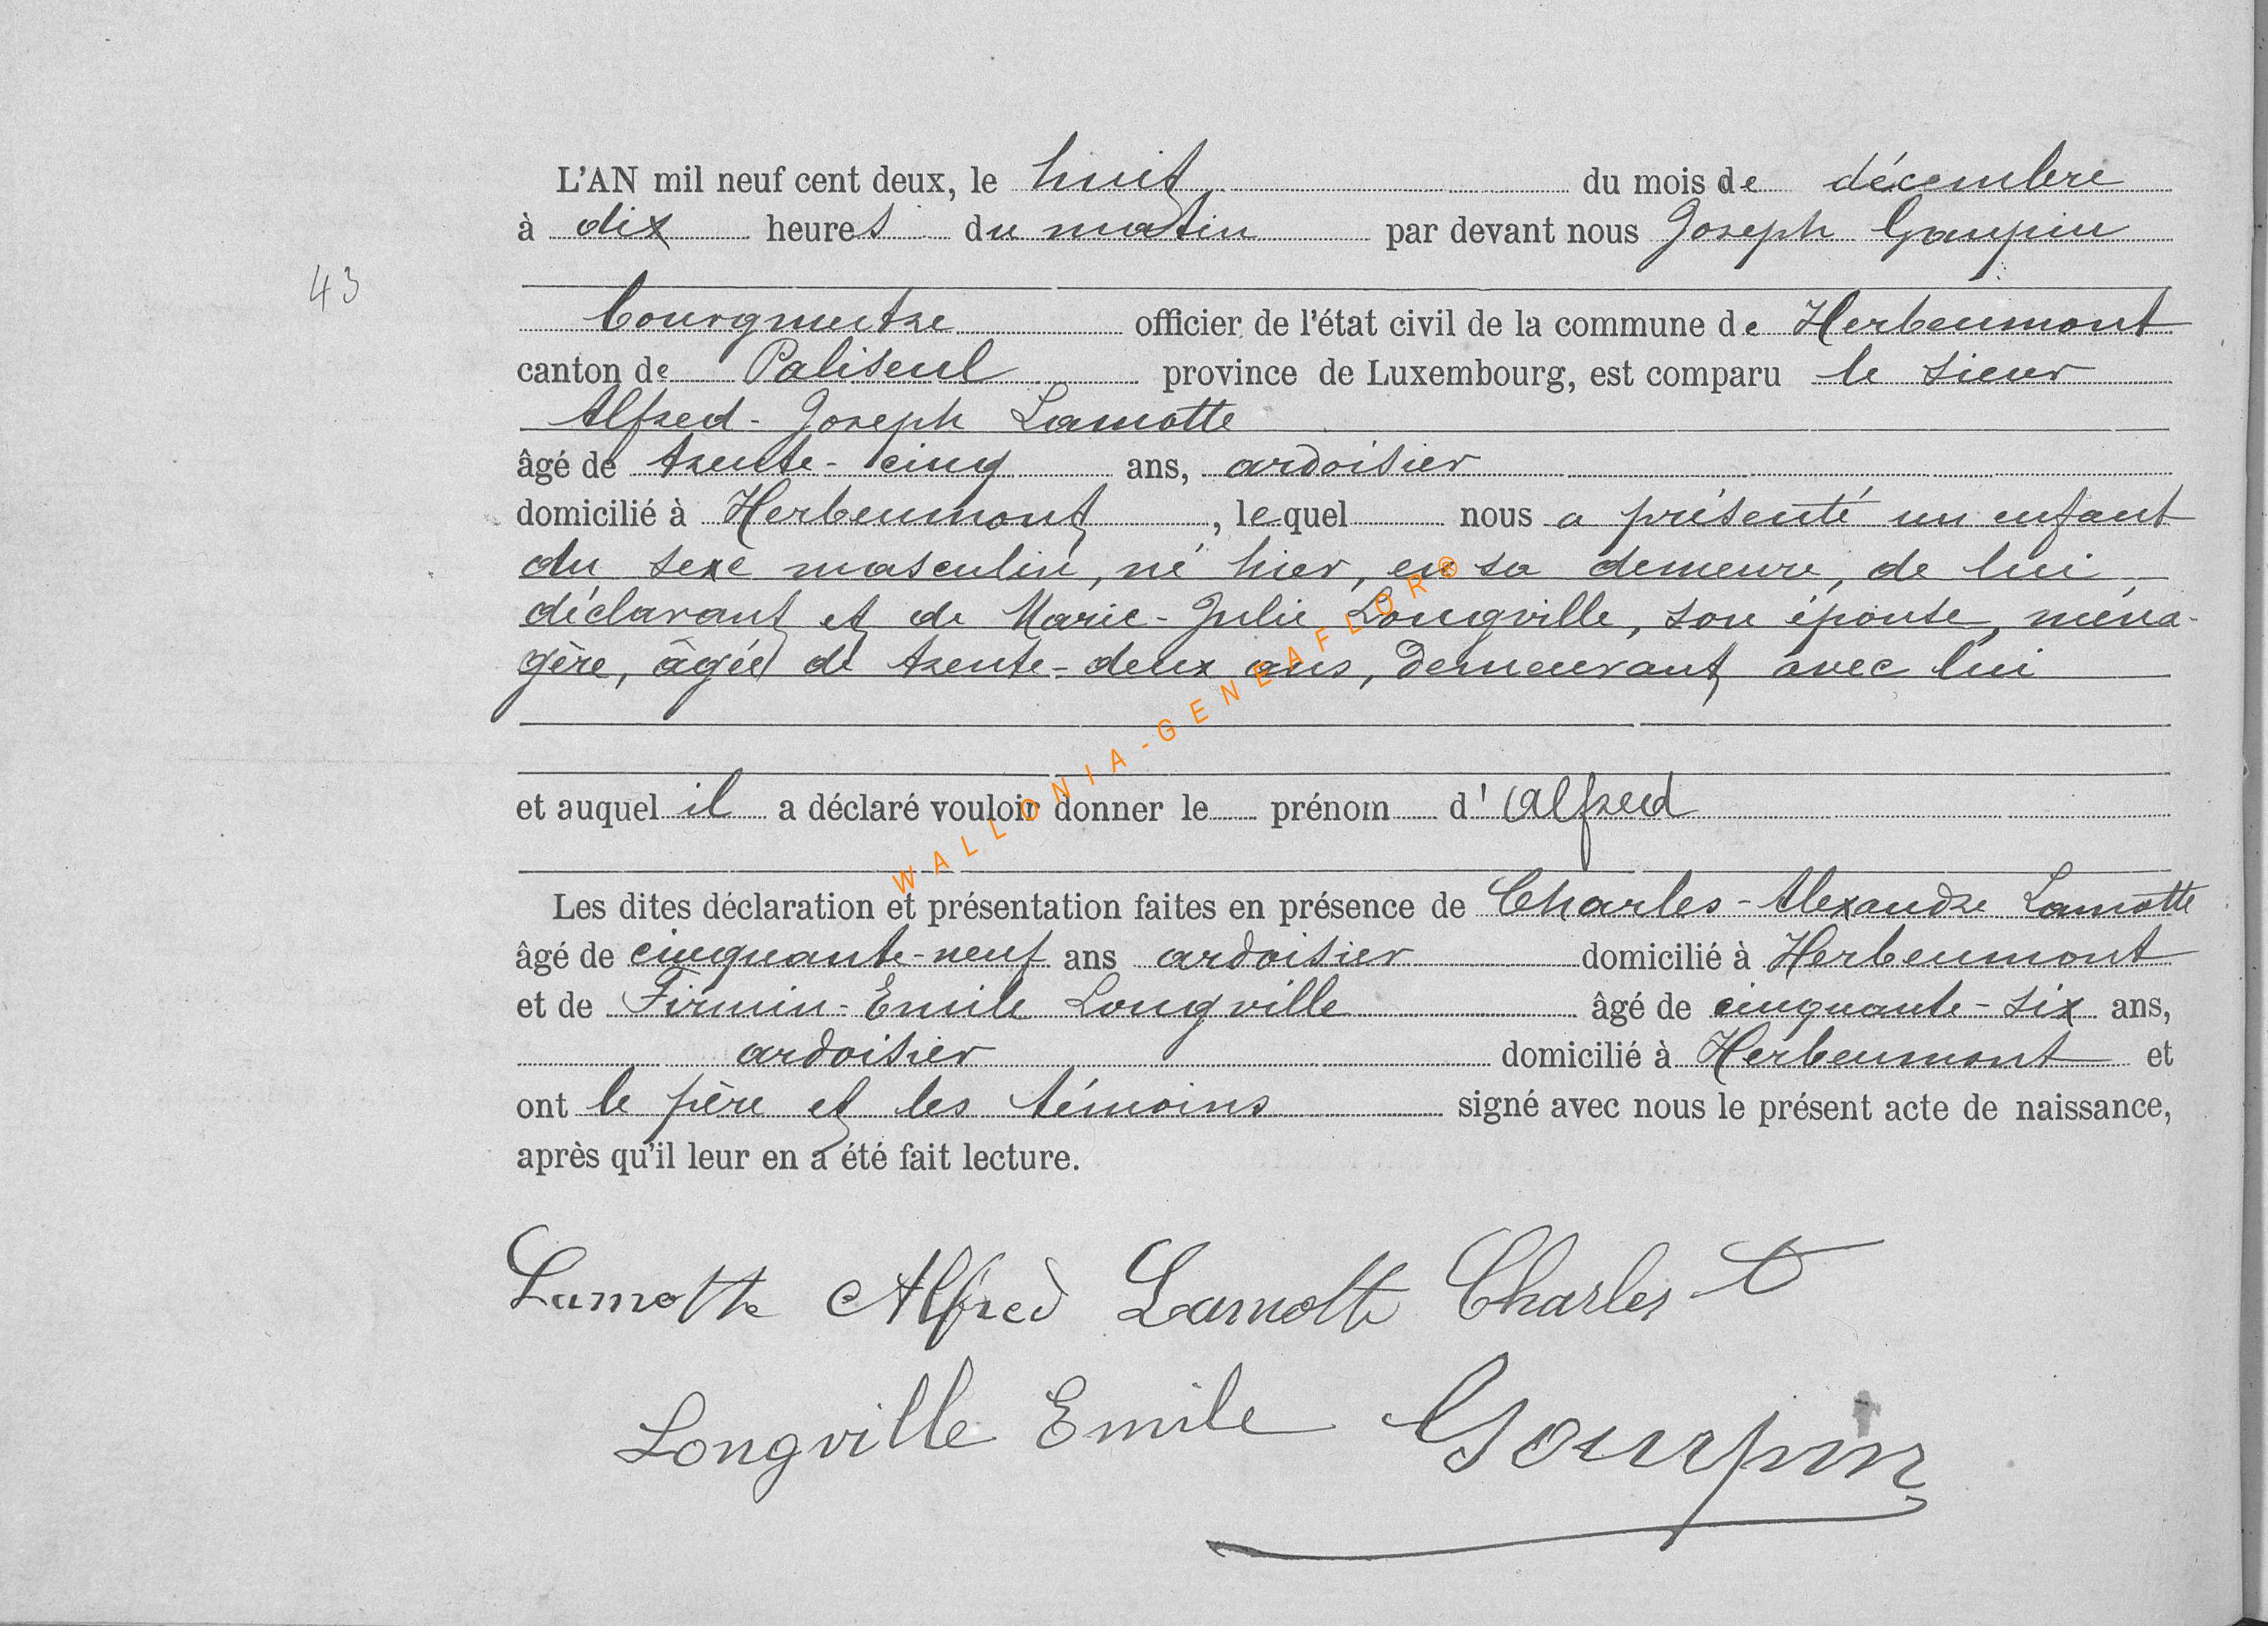 L'AN mil neuf cent deux, le huit du mois de décembre
à dix heures du matin par devant nous Joseph Gaupin
43
bourgmestre officier de l'état civil de la commune de Herbeumont
canton de Paliseul province de Luxembourg, est comparu le sieur
Alfred-Joseph Lamotte
âgé de trente-cinq ans, ardoisier
domicilié à Herbeumont, lequel nous a présenté un enfant
du sexe masculin, né hier, en sa demeure, de lui
déclarant et de Marie-Julie Longville, son épouse, ména-
gère, âgée de trente-deux ans, demeurant avec lui
et auquel il a déclaré vouloir donner le prénom d'Alfred
Les dites déclaration et présentation faites en présence de Charles-Alexandre Lamotte
âgé de cinquante-neuf ans ardoisier domicilié à Herbeumont
et de Firmin-Emile Longville âgé de cinquante-six ans,
ardoisier domicilié à Herbeumont et
ont le père et les témoins signé avec nous le présent acte de naissance,
après qu'il leur en a été fait lecture.
Lamotte Alfred Lamotte Charles
Longville Emile
WALLONIA-GENEAFLOR®